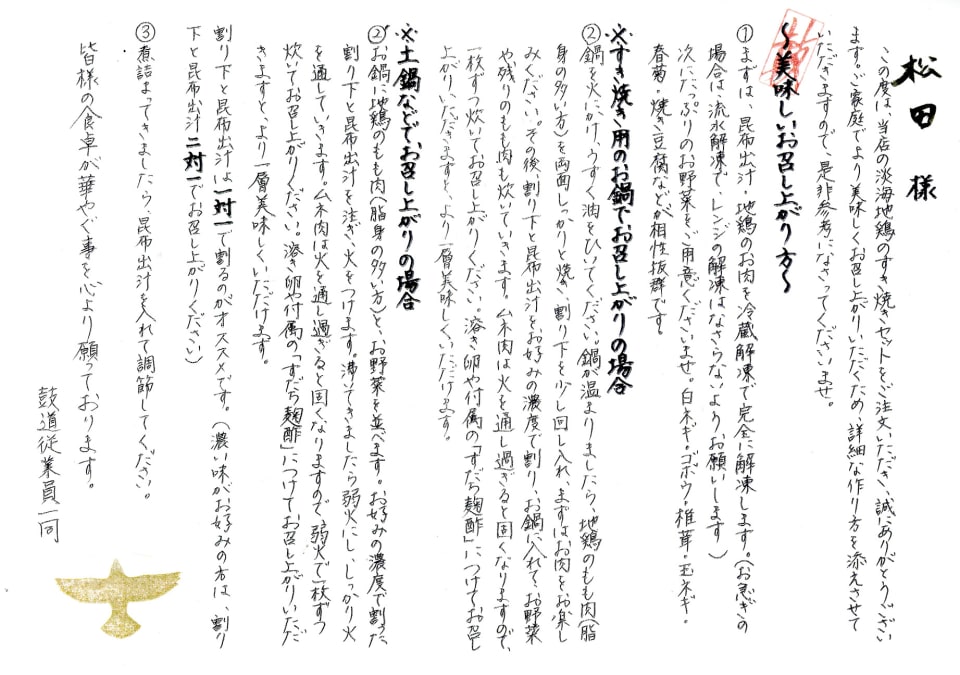 松田 様
この度は、当店の淡海地鶏のすき焼きセットをご注文いただき、誠にありがとうござい
ます。ご家庭でより美味しくお召し上がりいただくため、詳細な作り方を添えさせて
いただきますので、是非参考になさってくださいませ。
〜美味しいお召し上がり方〜
①まずは、昆布出汁・地鶏のお肉を冷蔵解凍で完全に解凍します。(お急ぎの
場合は、流水解凍で、レンジの解凍はなさらないようお願いします)
次に、たっぷりのお野菜をご用意くださいませ。白ネギ・ゴボウ・椎茸・玉ネギ・
春菊・焼き豆腐などが相性抜群です。
※すき焼き用のお鍋でお召し上がりの場合
②鍋を火にかけ、うすく油をひいてください。鍋が温まりましたら、地鶏のもも肉(脂
身の多い方)を両面しっかりと焼き、割り下を少し回し入れ、まずはお肉をお楽し
みください。その後、割り下と昆布出汁をお好みの濃度で割り、お鍋に入れて、お野菜
や残りのもも肉も炊いていきます。ムネ肉は火を通し過ぎると固くなりますので、
一枚ずつ炊いてお召し上がりください。溶き卵や付属の「すだち麹酢」につけてお召し
上がりいただきますと、より一層美味しくいただけます。
※土鍋などでお召し上がりの場合
②お鍋に地鶏のもも肉(脂身の多い方)と、お野菜を並べます。お好みの濃度で割った
割り下と昆布出汁を注ぎ、火をつけます。沸いてきましたら弱火にし、しっかり火
を通していきます。ムネ肉は火を通し過ぎると固くなりますので、弱火で一枚ずつ
炊いてお召し上がりください。溶き卵や付属の「すだち麹酢」につけてお召し上がりいただ
きますと、より一層美味しくいただけます。
割り下と昆布出汁は一対一で割るのがオススメです。(濃い味がお好みの方は、割り
下と昆布出汁二対一でお召し上がりください)
③煮詰まってきましたら、昆布出汁を入れて調節してください。
皆様の食卓が華やぐ事を心より願っております。
鼓道従業員一同